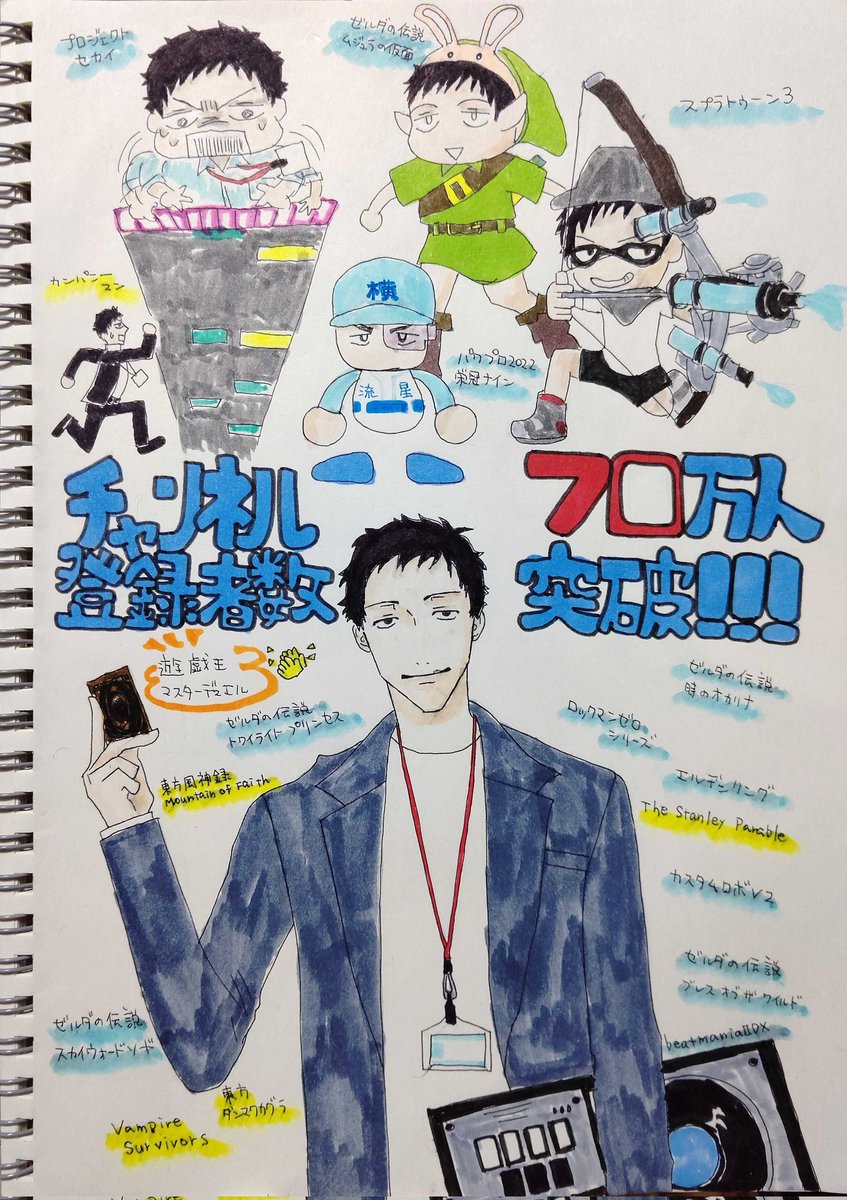 プロジェクト
セカイ
ゼルダの伝説
ムジュラの仮面
スプラトゥーン3
カンパニー
マン
横
流星
パワプロ2022
栄冠ナイン
チャンネル
登録者数
70万人
突破!!!
遊戯王
マスターデュエル
ゼルダの伝説
トワイライトプリンセス
東方風神録
Mountain of Faith
ゼルダの伝説
時のオカリナ
ロックマンゼロ
シリーズ
エルデンリング
The Stanley Parable
カスタムロボV2
ゼルダの伝説
ブレスオブザワイルド
beatmaniaIIDX
ゼルダの伝説
スカイウォードソード
東方
ダンスカグラ
Vampire
Survivors